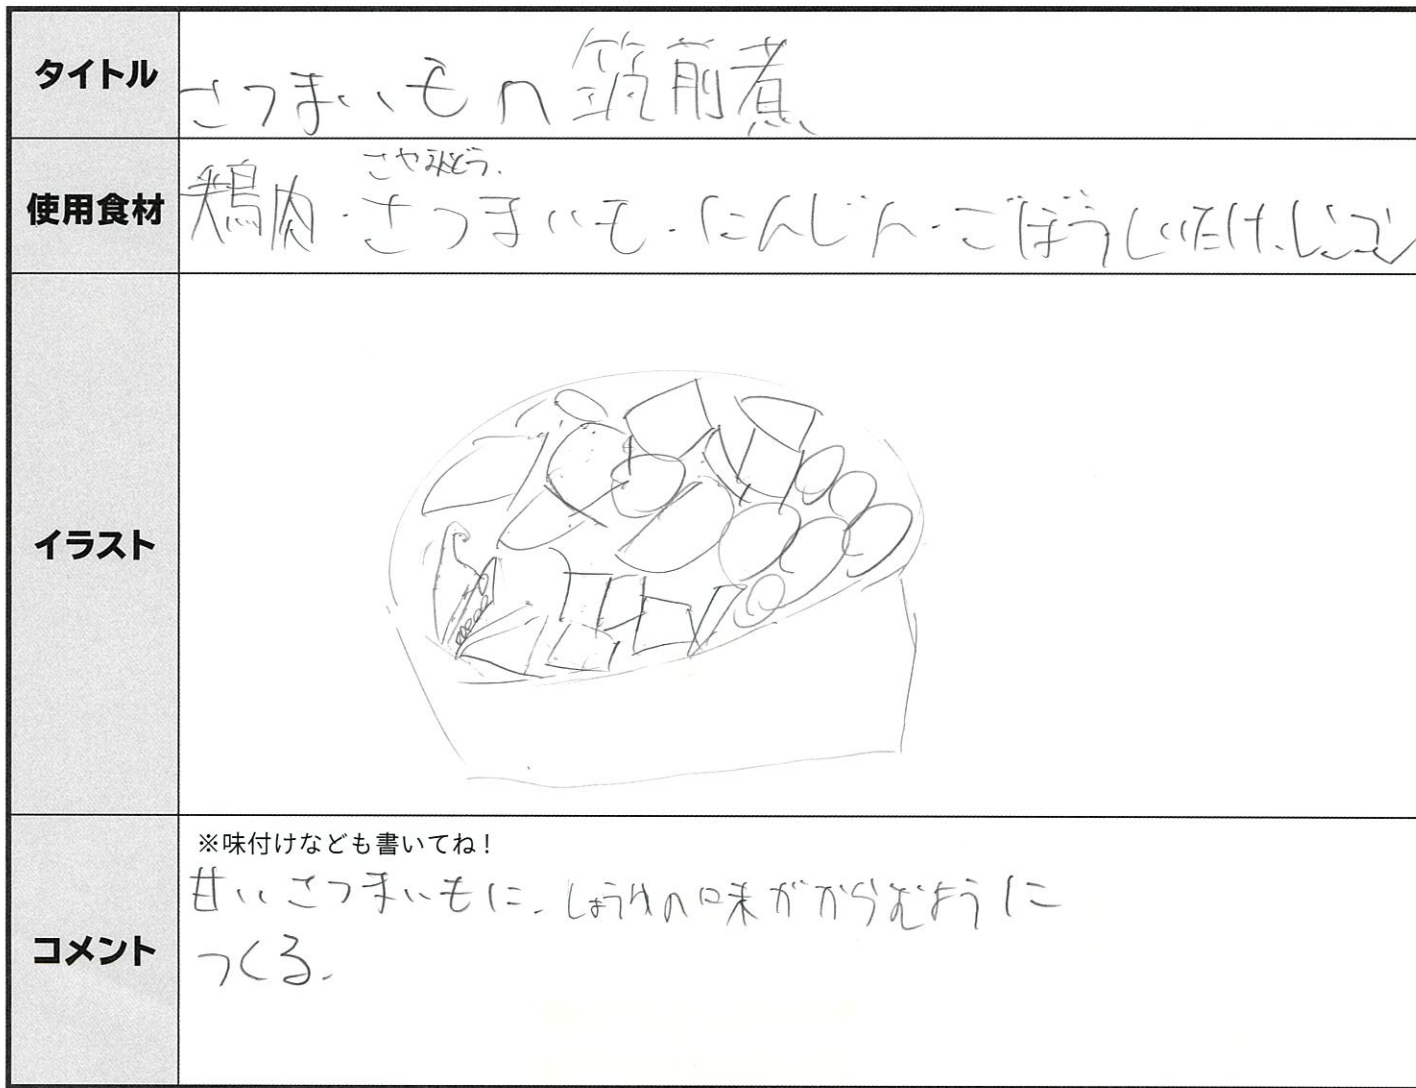 タイトル
さつまいもの筑前煮
使用食材
さやえんどう.
鶏肉・さつまいも・にんじん・ごぼうしいたけ、レンコン
イラスト
※味付けなども書いてね!
コメント
甘いさつまいもに、しょうゆの味がからむように
つくる.